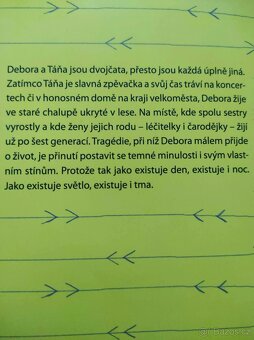 Debora a Táňa jsou dvojčata, přesto jsou každá úplně jiná.
Zatímco Táňa je slavná zpěvačka a svůj čas tráví na koncer-
tech či v honosném domě na kraji velkoměsta, Debora žije
ve staré chalupě ukryté v lese. Na místě, kde spolu sestry
vyrostly a kde ženy jejich rodu – léčitelky i čarodějky – žijí
už po šest generací. Tragédie, při níž Debora málem přijde
o život, je přinutí postavit se temné minulosti i svým vlast-
ním stínům. Protože tak jako existuje den, existuje i noc.
Jako existuje světlo, existuje i tma.